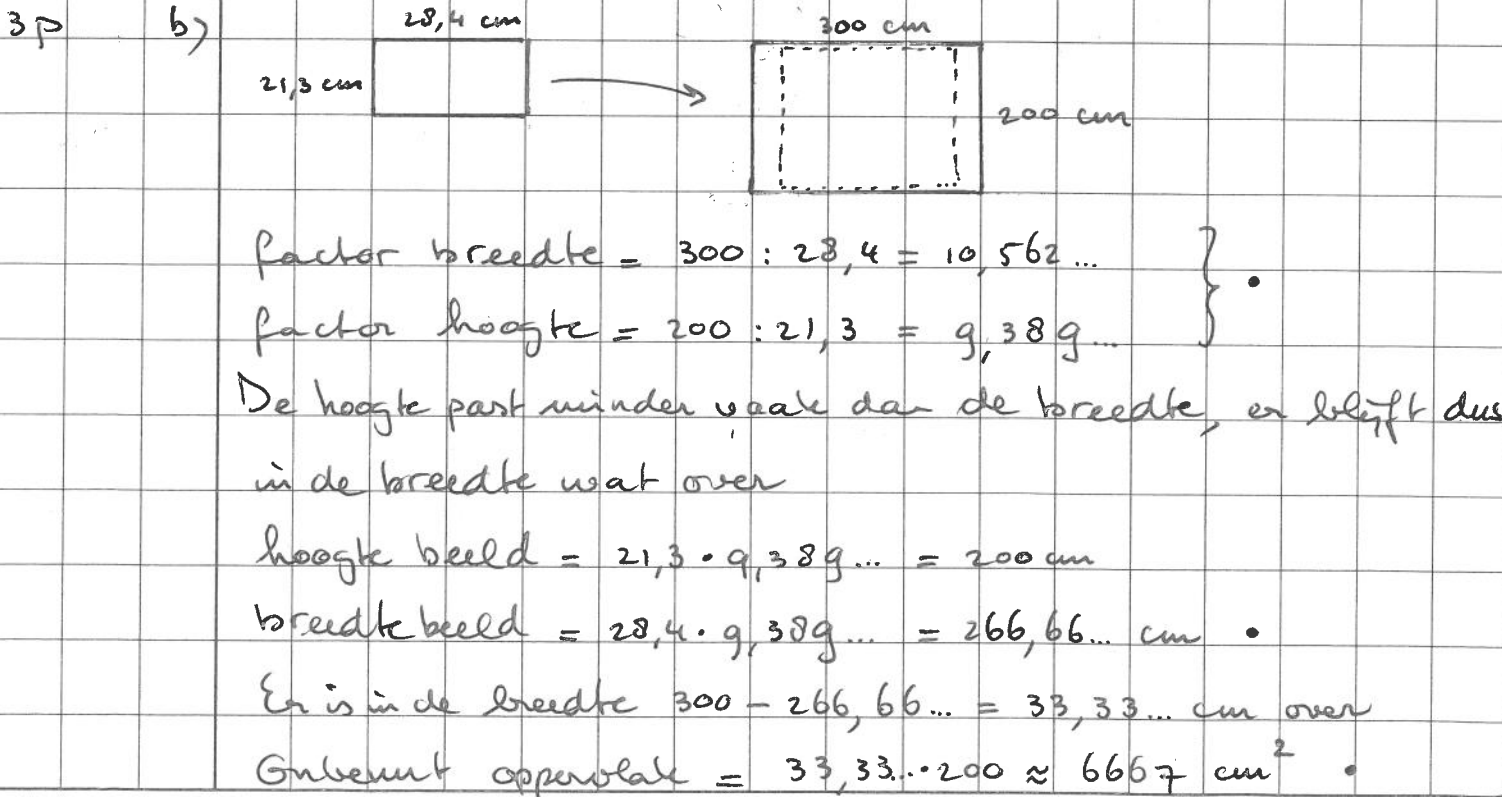 3p b) 28,4 cm 300 cm
21,3 cm 200 cm
factor breedte = 300 : 28,4 = 10,562...
factor hoogte = 200 : 21,3 = 9,389... } •
De hoogte past minder vaak dan de breedte, er blijft dus
in de breedte wat over
hoogte beeld = 21,3 • 9,389... = 200 cm
breedte beeld = 28,4 • 9,389... = 266,66... cm •
Er is in de breedte 300 - 266,66... = 33,33... cm over
Onbenut oppervlak = 33,33... • 200 ≈ 6667 cm² •